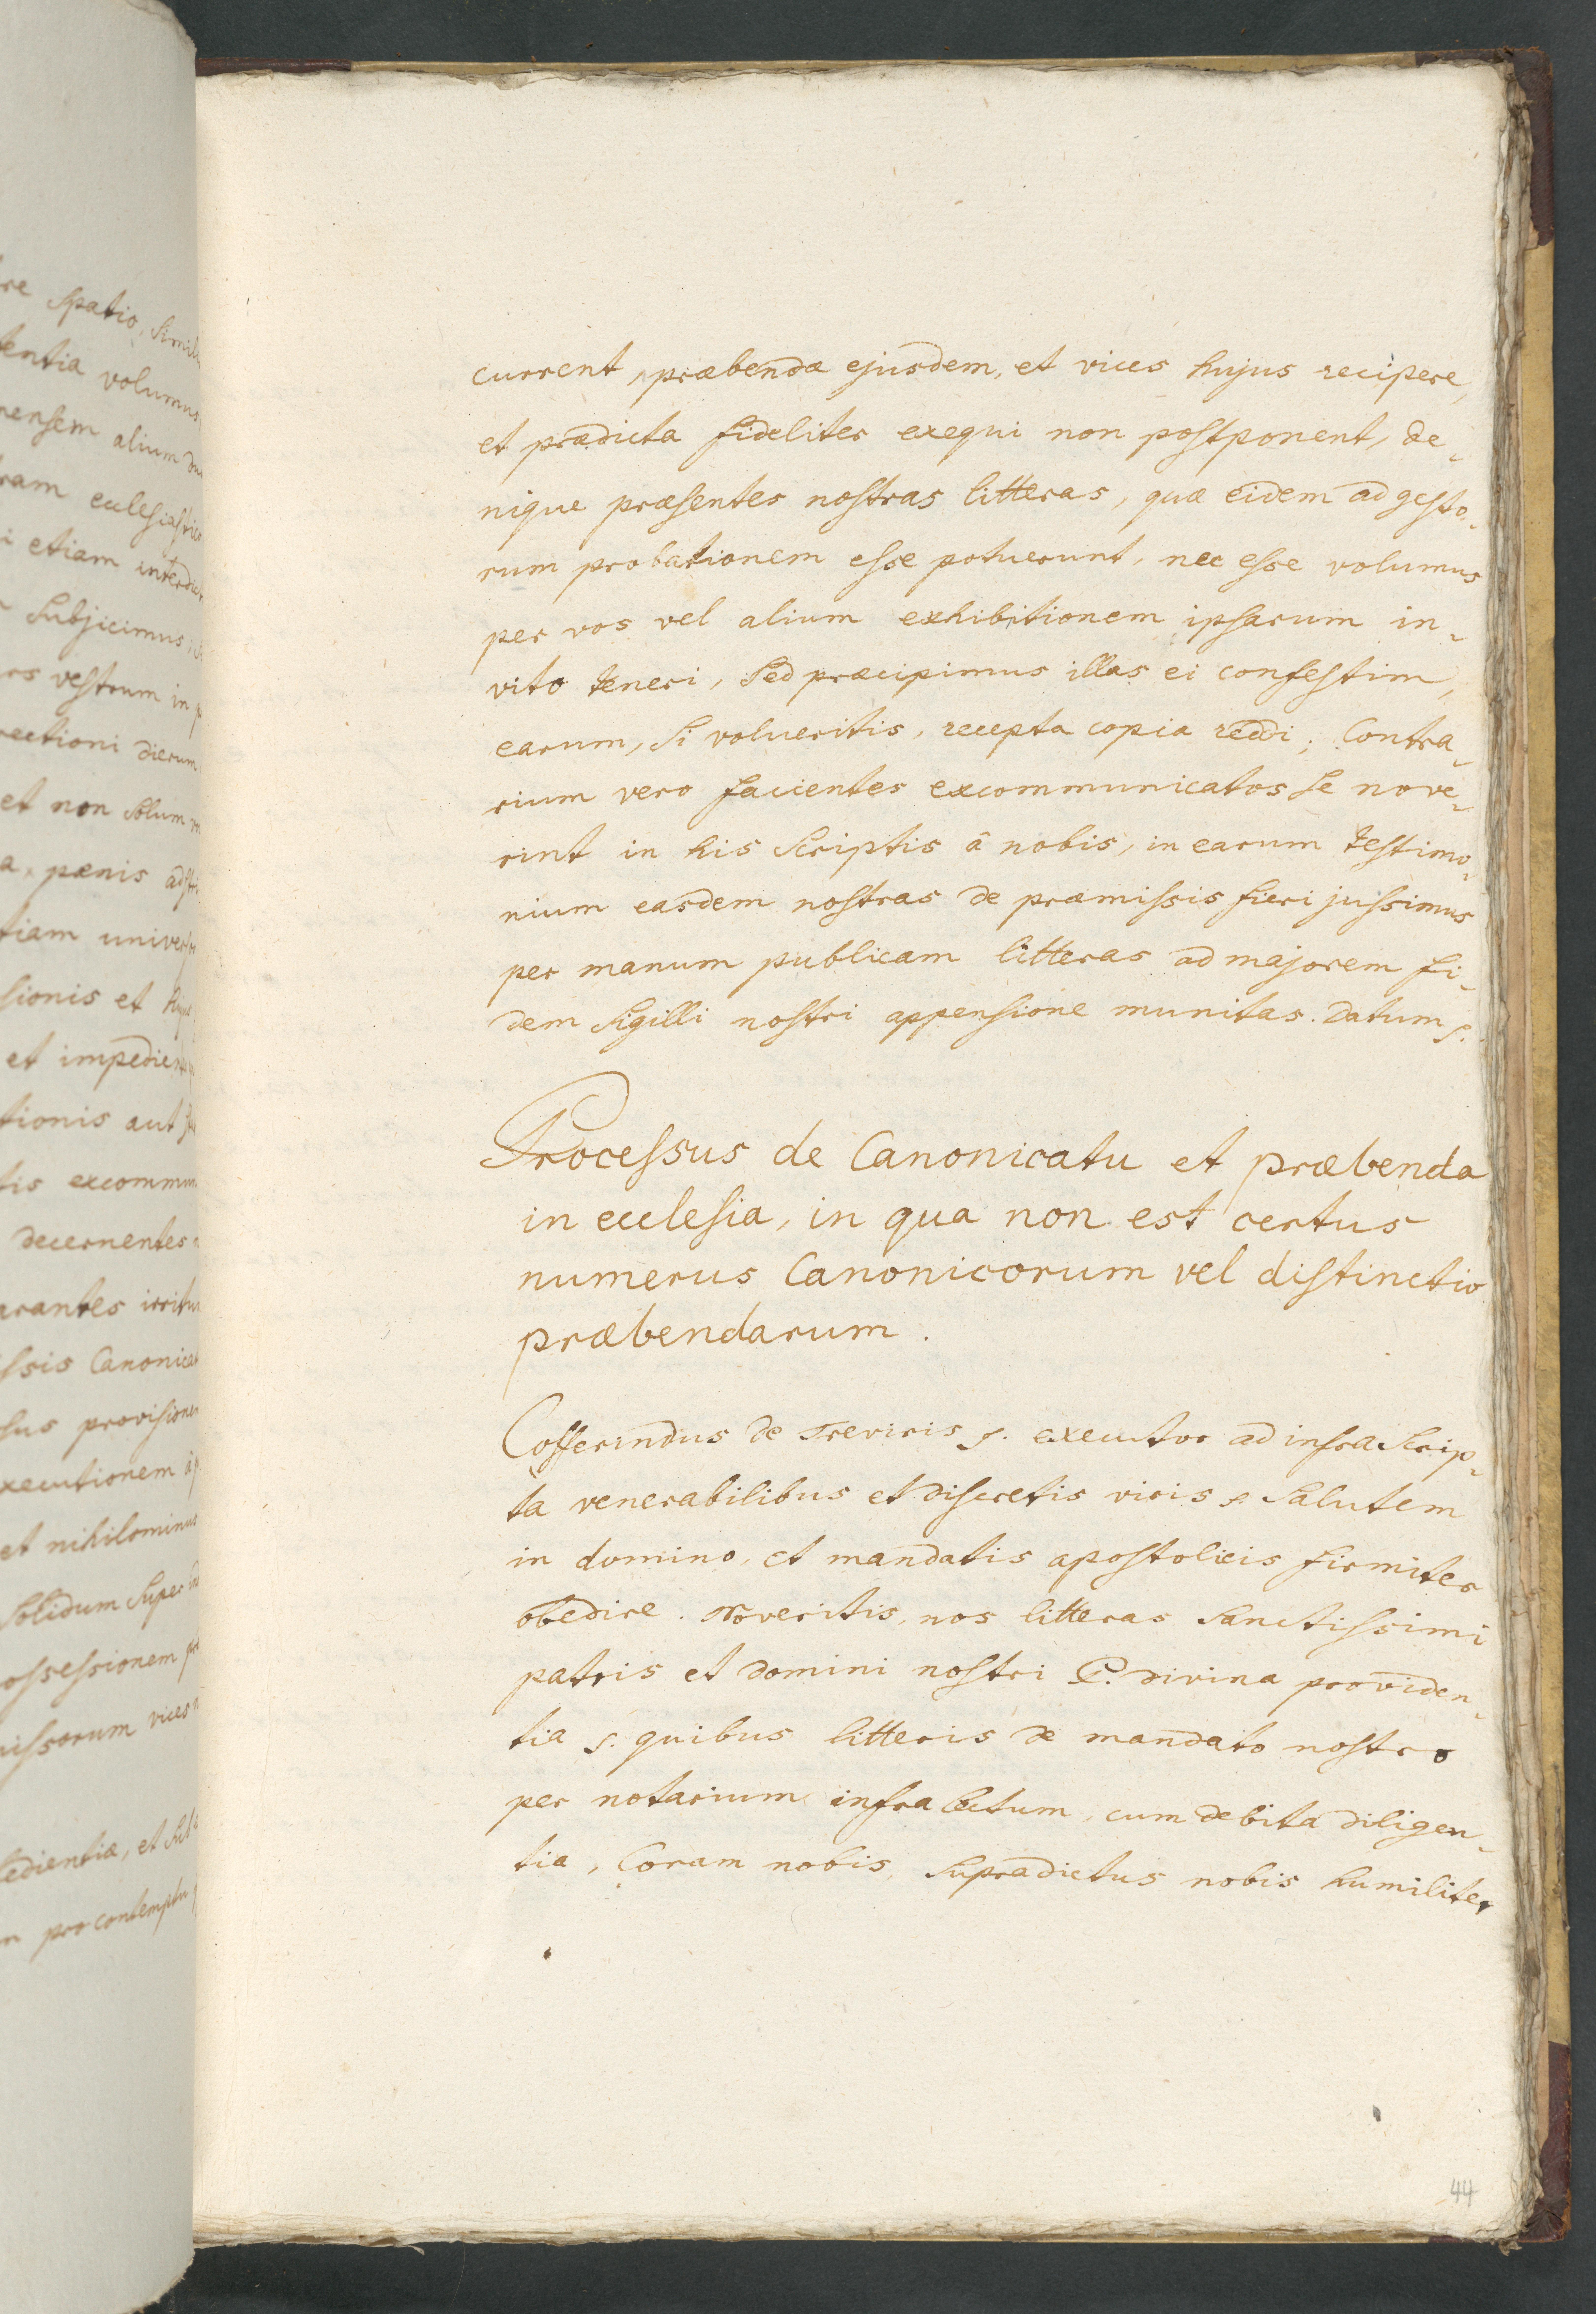 re spatio, simili
tentia volumus
mensem alium
ram ecclesiastic
i etiam interdict
subjicimus,
rs vestrum in p
rectioni dierum
et non solum
a pænis adst
tiam univers
sionis et huju
et impedient
tionis aut
tis excommun
decernentes
arantes irritu
ssis Canonicat
sus provisionem
xecutionem à p
et nihilominus
solidum super
ossessionem
missorum vices
edientiæ, et sub
m pro contemptu
current, præbendæ ejusdem, et vices hujus recipere,
et prædicta fideliter exequi non postponent, de-
nique præsentes nostras litteras, quæ eidem ad gesto-
rum probationem esse potuerunt, nec esse volumus
per vos vel alium exhibitionem ipsarum in-
vito teneri, sed præcipimus illas ei confestim,
earum, si volueritis, recepta copia reddi; Contra-
rium vero facientes excommunicatos se nove-
rint in his scriptis â nobis, in earum testimo-
nium easdem nostras de præmissis fieri jussimus
per manum publicam litteras ad majorem fi-
dem sigilli nostri appensione munitas. Datum s.
Processus de Canonicatu et præbenda
in ecclesia, in qua non est certus
numerus Canonicorum vel distinctio
præbendarum.
Cofferindus de Treviris s. executor ad infra scrip-
ta venerabilibus et discretis viris s. salutem
in domino, et mandatis apostolicis firmiter
obedire. Noveritis, nos litteras sanctissimi
patris et domini nostri P. divina providen-
tia s. quibus litteris de mandato nostro
per notarium infra lectum, cum debita diligen-
tia, Coram nobis, supradictus nobis humiliter
44